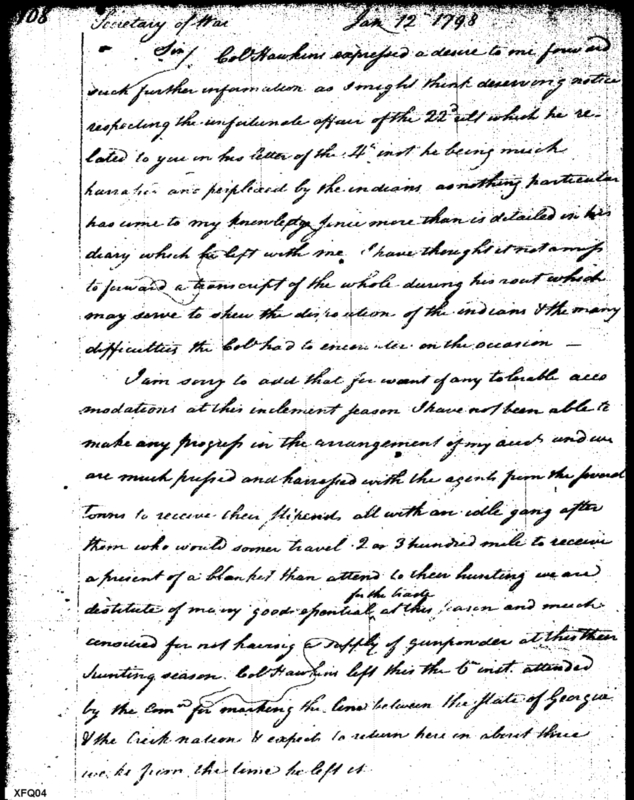 108
Secretary of War Jan 12th 1798
Sir/ Colo Hawkins expressed a desire to me forward
such further information as I might think deserving notice
respecting the unfortunate affair of the 22d ult which he re-
lated to you in his letter of the 4th inst he being much
harrassed and perplexed by the indians as nothing particular
has come to my knowledge since more than is detailed in his
diary which he left with me. I have thought it not amiss
to forward a transcript of the whole during his rout which
may serve to shew the disposition of the indians & the many
difficulties the Colo had to encounter on the occasion —
I am sorry to add that for want of any tolerable acco
modations at this inclement season I have not been able to
make any progress in the arrangement of my accts and we
are much pressed and harrassed with the agents from the several
towns to receive their stipends all with an idle gang after
them who would sooner travel 2 or 3 hundred mile to receive
a present of a blanket than attend to their hunting we are
for the trade
destitute of many goods essential at this season and much
censured for not having a supply of gunpowder at this their
hunting season. Colo Hawkins left this the 6th inst. attended
by the Comrs for marking the line between the State of Georgia
& the Creek nation & expects to return here in about three
weeks from the time he left it
XFQ04